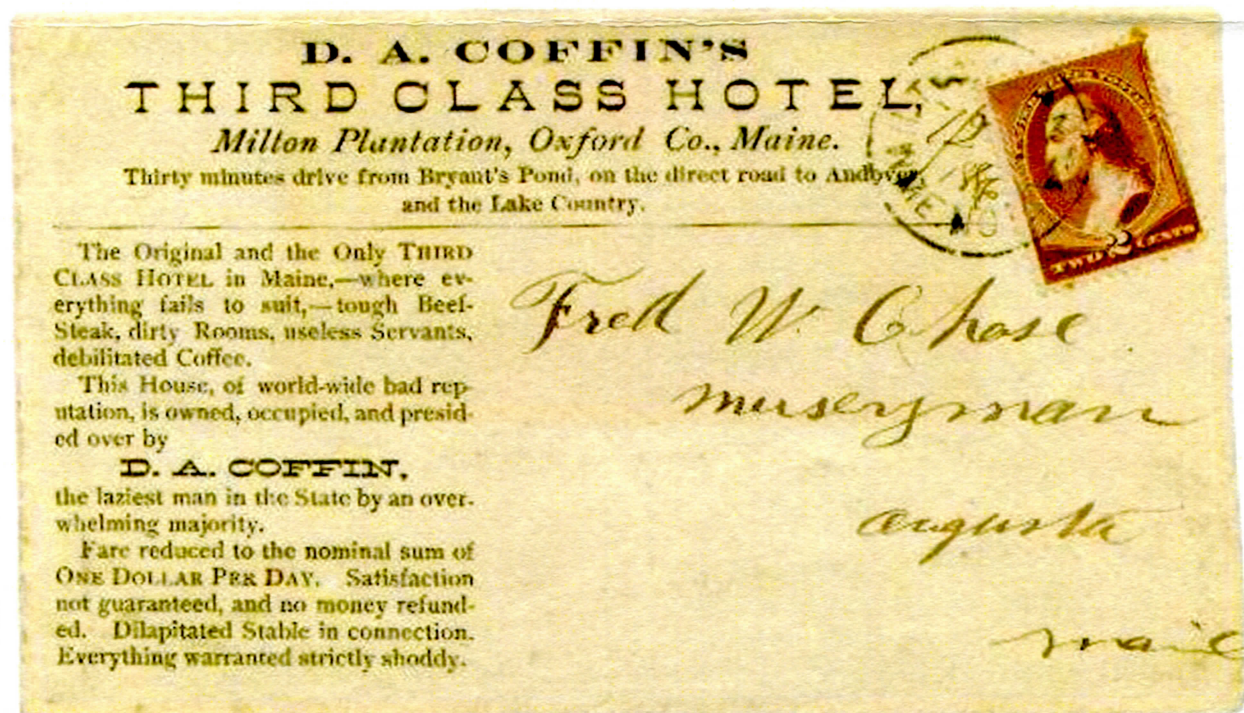 D. A. COFFIN'S
THIRD CLASS HOTEL,
Milton Plantation, Oxford Co., Maine.
Thirty minutes drive from Bryant's Pond, on the direct road to Andover,
and the Lake Country.
The Original and the Only THIRD
CLASS HOTEL in Maine,—where ev-
erything fails to suit,—tough Beef-
Steak, dirty Rooms, useless Servants,
debilitated Coffee.
This House, of world-wide bad rep-
utation, is owned, occupied, and presid-
ed over by
D. A. COFFIN,
the laziest man in the State by an over-
whelming majority.
Fare reduced to the nominal sum of
ONE DOLLAR PER DAY. Satisfaction
not guaranteed, and no money refund-
ed. Dilapitated Stable in connection.
Everything warranted strictly shoddy.
TWO 2 CENTS
Fred W. Chase
nurseryman
augusta
maine